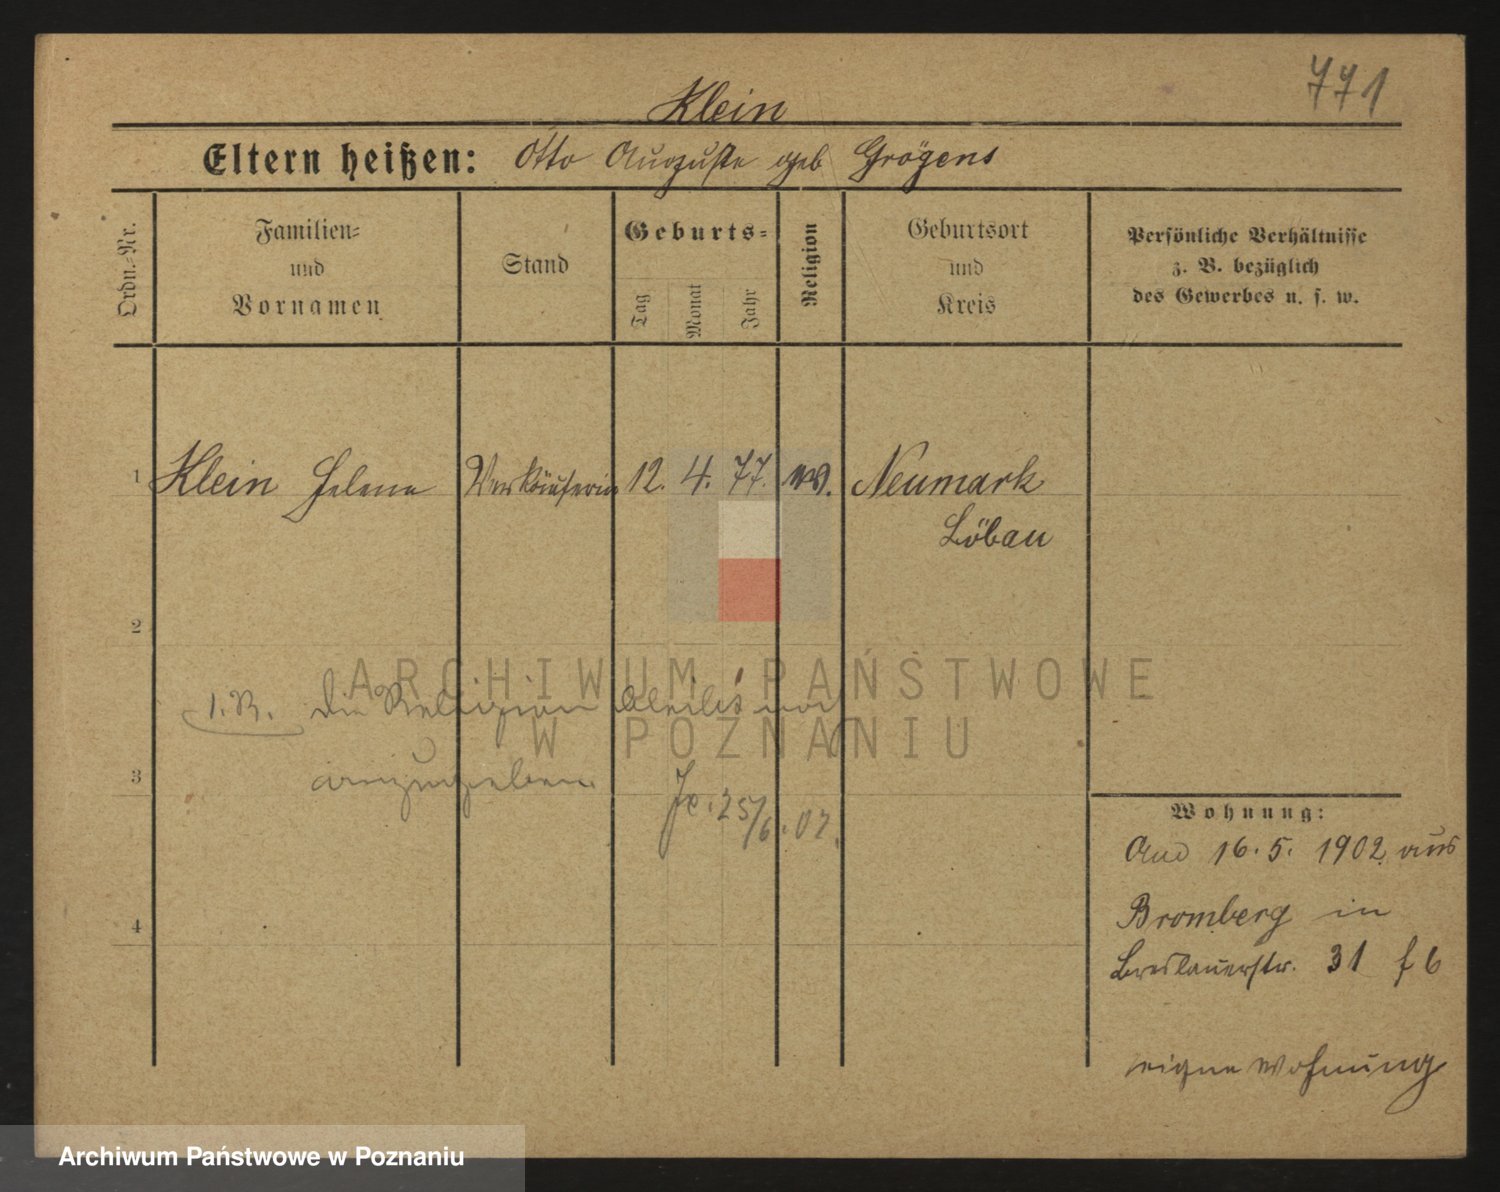 771
Klein
Eltern heißen: Otto Auguste geb Grögens
Ordn.-Nr.
Familien-
und
Vornamen
Stand
Geburts-
Tag
Monat
Jahr
Religion
Geburtsort
und
Kreis
Persönliche Verhältnisse
z. B. bezüglich
des Gewerbes u. s. w.
1 Klein Helene Verkäuferin 12. 4. 77. Neumark
Löbau
2
ARCHIWUM PAŃSTWOWE
W POZNANIU
Die Religion
3 anzugeben.
25/6.02.
Wohnung:
16.5. 1902 aus
Bromberg in
Breslauerstr. 31
4
eigne Wohnung
Archiwum Państwowe w Poznaniu